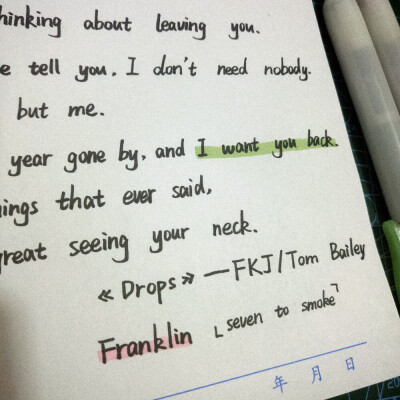 hinking about leaving you.
e tell you. I don't need nobody.
but me.
year gone by, and I want you back.
ings that ever said,
reat seeing your neck.
《Drops》—FKJ/Tom Bailey
Franklin 「seven to smoke」
年 月 日